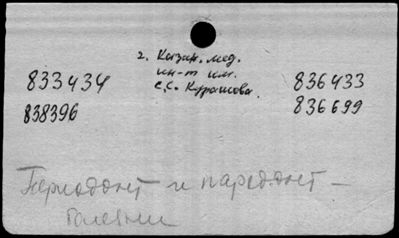 2. Казан. мед.
ин-т им.
С.С. Курашова.
833434
836433
838396
836699
Периодонт и пародонт –
болезни